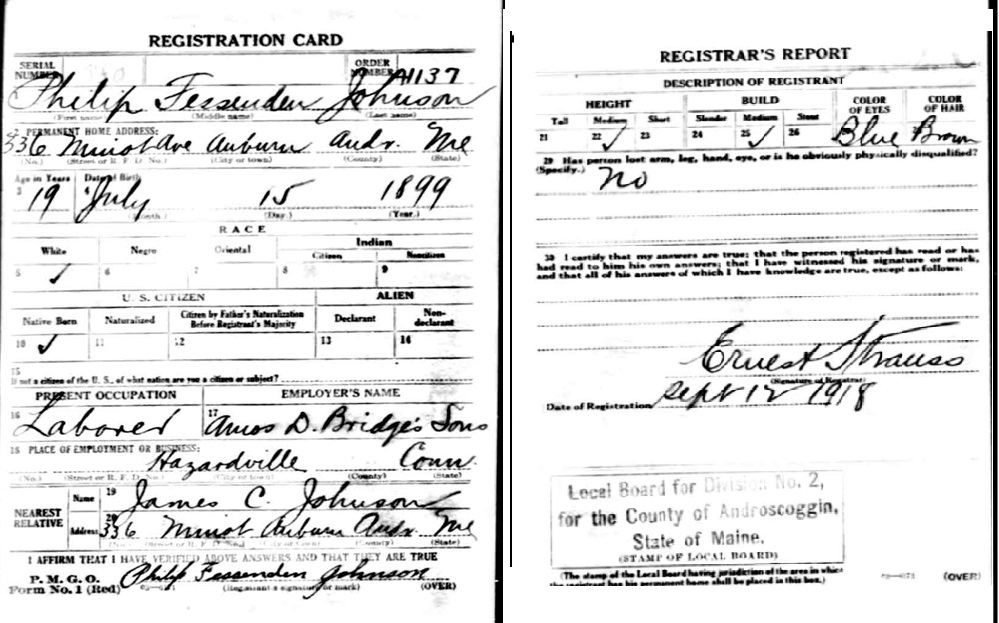 REGISTRATION CARD
SERIAL NUMBER ORDER NUMBER A1137
Philip Fessenden Johnson
(First name) (Middle name) (Last name)
2 PERMANENT HOME ADDRESS:
336 Minot Ave Auburn Andr. Me
(No.) (Street or R. F. D. No.) (City or town) (County) (State)
Age in Years Date of Birth
3 19 4 July 15 1899
(Month.) (Day.) (Year.)
RACE
White Negro Oriental Indian
Citizen Noncitizen
5 ✓ 6 7 8 9
U. S. CITIZEN ALIEN
Native Born Naturalized Citizen by Father's Naturalization Before Registrant's Majority Declarant Non-declarant
10 ✓ 11 12 13 14
15
If not a citizen of the U. S., of what nation are you a citizen or subject?
PRESENT OCCUPATION EMPLOYER'S NAME
16 Laborer 17 Amos D. Bridge's Sons
18 PLACE OF EMPLOYMENT OR BUSINESS:
Hazardville Conn.
(No.) (Street or R. F. D. No.) (City or town) (County) (State)
NEAREST RELATIVE Name 19 James C. Johnson
Address 20 336 Minot Auburn Andr. Me
(No.) (Street or R. F. D. No.) (City or town) (County) (State)
I AFFIRM THAT I HAVE VERIFIED ABOVE ANSWERS AND THAT THEY ARE TRUE
P. M. G. O.
Form No. 1 (Red) Philip Fessenden Johnson
(Registrant's signature or mark) (OVER)
REGISTRAR'S REPORT
DESCRIPTION OF REGISTRANT
HEIGHT BUILD COLOR OF EYES COLOR OF HAIR
Tall Medium Short Slender Medium Stout
21 22 ✓ 23 24 25 ✓ 26 Blue Brown
29 Has person lost arm, leg, hand, eye, or is he obviously physically disqualified?
(Specify.) no
30 I certify that my answers are true; that the person registered has read or has
had read to him his own answers; that I have witnessed his signature or mark,
and that all of his answers of which I have knowledge are true, except as follows:
Ernest Strauss
(Signature of Registrar)
Date of Registration Sept 12 1918
Local Board for Division No. 2,
for the County of Androscoggin,
State of Maine.
(STAMP OF LOCAL BOARD)
(The stamp of the Local Board having jurisdiction of the area in which
the registrant has his permanent home shall be placed in this box.) (OVER)